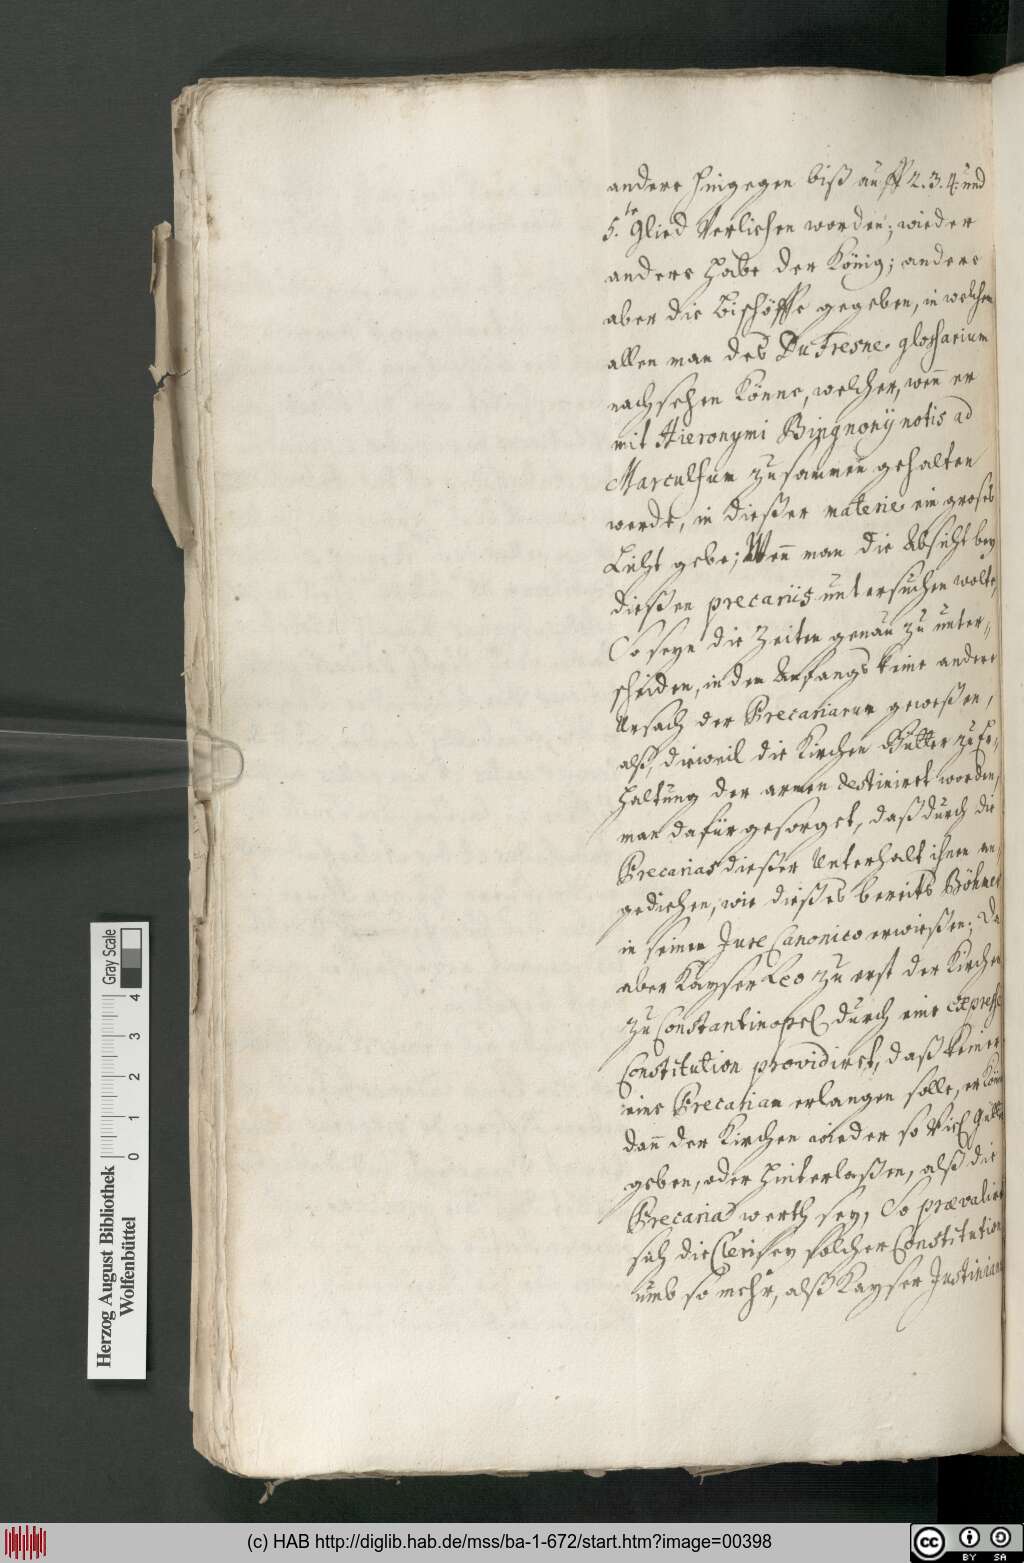 andere hingegen biß auff 2. 3. 4. und
5.te Glied Verliehen worden; wieder
andere habe der König; andere
aber die Bischöffe gegeben, in welchen
allen man des Du Fresne glossarium
nachsehen könne, welcher, wen̄ er
mit Hieronymi Bignonij notis ad
Marculfum zusammen gehalten
werde, in dießer materie ein großes
Licht gebe; Wen̄ man die Absicht bey
dießen precariis untersuchen wolte,
So seyn die Zeiten genau zu unter-
scheiden, in dem Anfangs keine andere
Ursach der Precariarum geweßen,
alß, dieweil die Kirchen Gütter zu Er-
haltung der armen destiniret worden,
man dafür gesorget, daß durch die
Precarias dießer Unterhalt ihnen an-
gediehen, wie dießes bereits Böhmer
in seinem Jure Canonico erwießen; Da
aber Kayser Leo zu erst der Kirchen
zu Constantinopel durch eine expresse
Constitution providiret, daß keiner
eine Precariam erlangen solle, er könne
dan̄ der Kirchen wieder so viel Gütter
geben, oder hinterlaßen, alß die
Precaria werth sey, So prævaliret
sich die Clerisey solcher Constitution
umb so mehr, alß Kayser Justinianus
Herzog August Bibliothek
Wolfenbüttel
0 1 2 3 4
Gray Scale
(c) HAB http://diglib.hab.de/mss/ba-1-672/start.htm?image=00398
cc BY SA